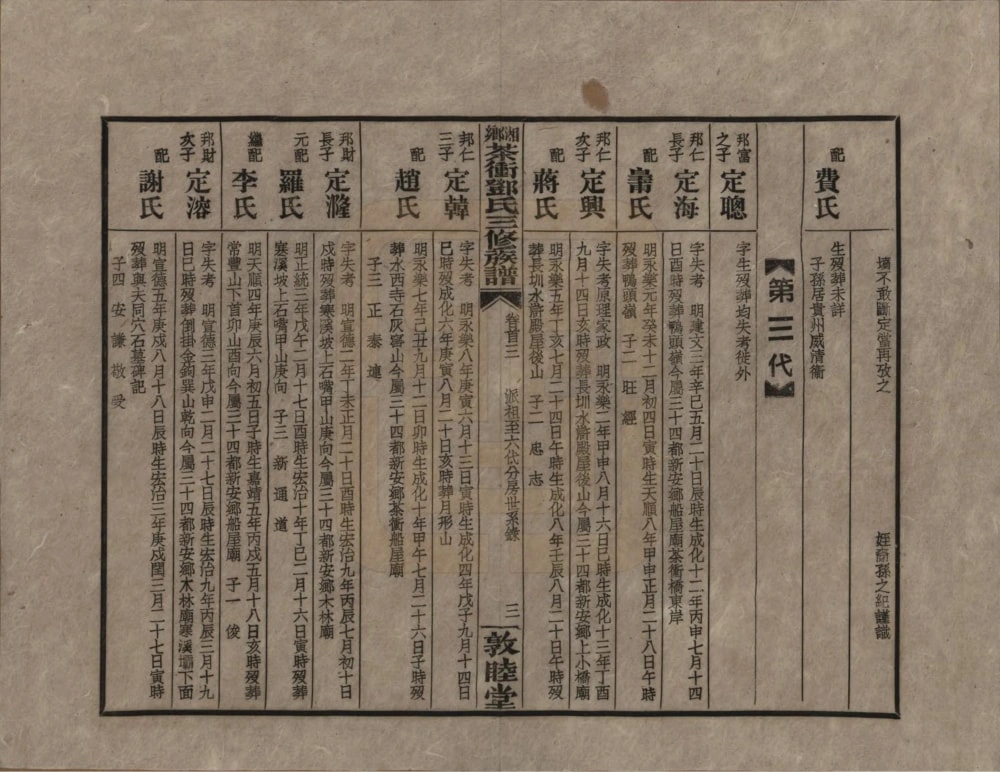 壙不敢斷定當再攷之
姪裔孫之紀謹識
配
費氏
生歿葬未詳
子孫居貴州威清衛
第三代
邦富之子
定聰
字生歿葬均失考徙外
邦仁長子
定海
字失考 明建文三年辛巳五月二十日辰時生成化十二年丙申七月十四
日酉時歿葬鴨頭嶺今屬三十四都新安鄉船屋廟茶衝橋東岸
配
明永樂元年癸未十二月初四日寅時生天順八年甲申正月二十八日午時
歿葬鴨頭嶺 子二 旺 經
邦仁次子
定興
字失考原理家政 明永樂二年甲申八月十六日巳時生成化十三年丁酉
九月十四日亥時歿葬長圳水滸殿屋後山今屬三十四都新安鄉上小橋廟
配
蔣氏
明永樂五年丁亥七月二十四日午時生成化八年壬辰八月二十日午時歿
葬長圳水滸殿屋後山 子二 忠 志
湘鄉茶衝鄧氏三修族譜
卷首三
派祖至六代分房世系錄
三
敦睦堂
邦仁三子
定韓
字失考 明永樂八年庚寅六月十三日寅時生成化四年戊子九月十四日
巳時歿成化六年庚寅八月二十日亥時葬月形山
配
趙氏
明永樂七年己丑九月十二日卯時生成化十年甲午七月二十六日子時歿
葬水西寺石灰窰山今屬三十四都新安鄉茶衝船屋廟
子三 正 泰 連
邦財長子
定瀊
字失考 明宣德二年丁未正月二十日酉時生宏治九年丙辰七月初十日
戌時歿葬寒溪坡上石嘴甲山庚向今屬三十四都新安鄉木林廟
元配
羅氏
明正統三年戊午二月十七日酉時生宏治十年丁巳二月十六日寅時歿葬
寒溪坡上石嘴甲山庚向 子三 新 通 道
繼配
李氏
明天順四年庚辰六月初五日子時生嘉靖五年丙戌五月十八日亥時歿葬
常豐山下首卯山酉向今屬三十四都新安鄉船屋廟 子一 俊
邦財次子
定溶
字失考 明宣德三年戊申二月二十七日辰時生宏治九年丙辰三月十九
日巳時歿葬倒掛金鉤巽山乾向今屬三十四都新安鄉木林廟寒溪壩下面
配
謝氏
明宣德五年庚戌八月十八日辰時生宏治三年庚戌閏三月二十七日寅時
歿葬與夫同穴石墓碑記
子四 安 謙 敬 愛